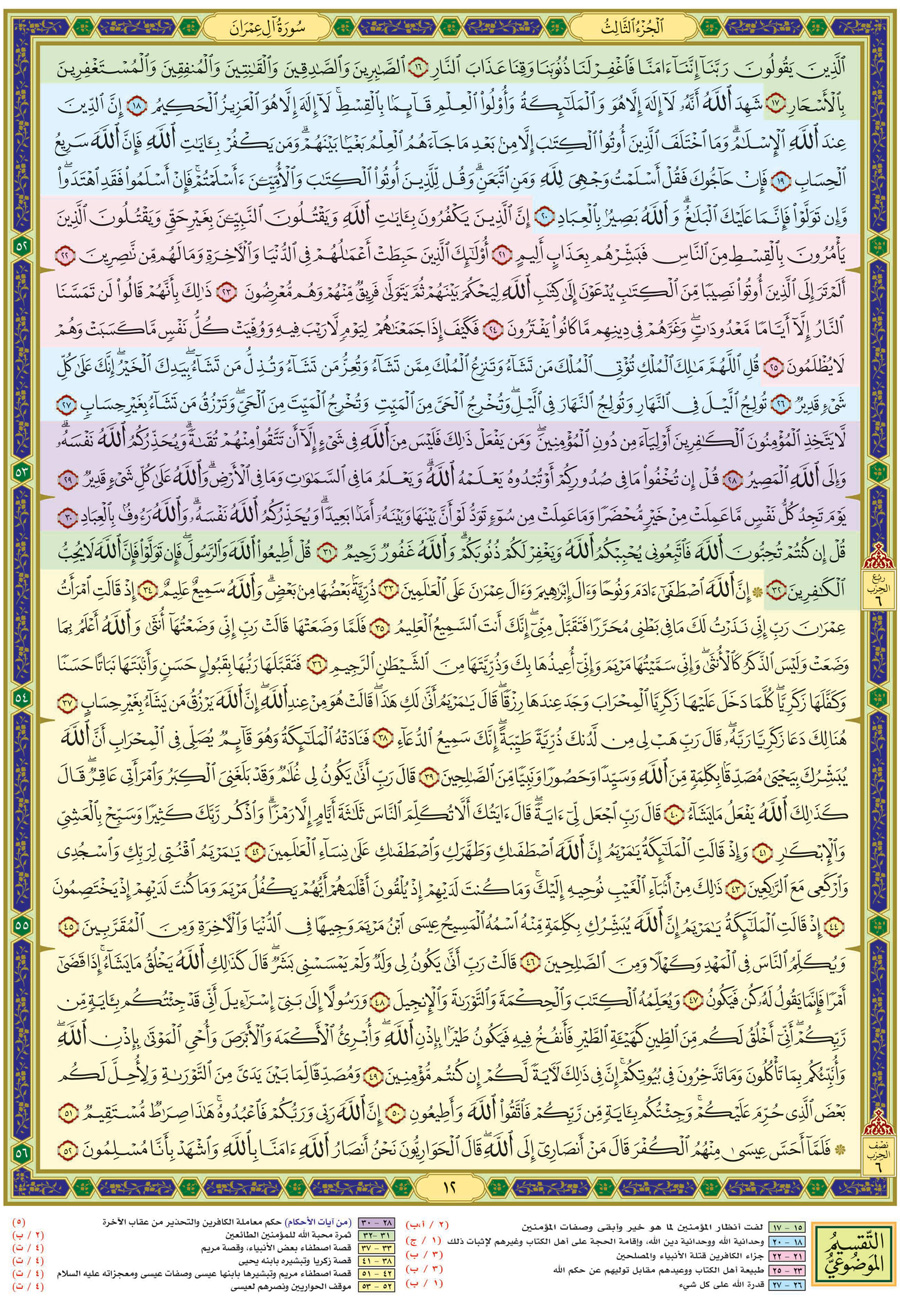 الجُزْءُ الثَّالِثُ
سُورَةُ آلِ عِمْرَانَ
الَّذِينَ يَقُولُونَ رَبَّنَا إِنَّنَا ءَامَنَّا فَاغْفِرْ لَنَا ذُنُوبَنَا وَقِنَا عَذَابَ النَّارِ ١٦ الصَّابِرِينَ وَالصَّادِقِينَ وَالْقَانِتِينَ وَالْمُنفِقِينَ وَالْمُسْتَغْفِرِينَ
بِالْأَسْحَارِ ١٧ شَهِدَ اللَّهُ أَنَّهُ لَا إِلَهَ إِلَّا هُوَ وَالْمَلَائِكَةُ وَأُولُوا الْعِلْمِ قَائِمًا بِالْقِسْطِ لَا إِلَهَ إِلَّا هُوَ الْعَزِيزُ الْحَكِيمُ ١٨ إِنَّ الدِّينَ
عِندَ اللَّهِ الْإِسْلَامُ وَمَا اخْتَلَفَ الَّذِينَ أُوتُوا الْكِتَابَ إِلَّا مِن بَعْدِ مَا جَاءَهُمُ الْعِلْمُ بَغْيًا بَيْنَهُمْ وَمَن يَكْفُرْ بِآيَاتِ اللَّهِ فَإِنَّ اللَّهَ سَرِيعُ
الْحِسَابِ ١٩ فَإِنْ حَاجُّوكَ فَقُلْ أَسْلَمْتُ وَجْهِيَ لِلَّهِ وَمَنِ اتَّبَعَنِ وَقُل لِّلَّذِينَ أُوتُوا الْكِتَابَ وَالْأُمِّيِّينَ ءَأَسْلَمْتُمْ فَإِنْ أَسْلَمُوا فَقَدِ اهْتَدَوا
وَّإِن تَوَلَّوْا فَإِنَّمَا عَلَيْكَ الْبَلَاغُ وَاللَّهُ بَصِيرٌ بِالْعِبَادِ ٢٠ إِنَّ الَّذِينَ يَكْفُرُونَ بِآيَاتِ اللَّهِ وَيَقْتُلُونَ النَّبِيِّينَ بِغَيْرِ حَقٍّ وَيَقْتُلُونَ الَّذِينَ
يَأْمُرُونَ بِالْقِسْطِ مِنَ النَّاسِ فَبَشِّرْهُم بِعَذَابٍ أَلِيمٍ ٢١ أُولَئِكَ الَّذِينَ حَبِطَتْ أَعْمَالُهُمْ فِي الدُّنْيَا وَالْآخِرَةِ وَمَا لَهُم مِّن نَّاصِرِينَ ٢٢
أَلَمْ تَرَ إِلَى الَّذِينَ أُوتُوا نَصِيبًا مِّنَ الْكِتَابِ يُدْعَوْنَ إِلَى كِتَابِ اللَّهِ لِيَحْكُمَ بَيْنَهُمْ ثُمَّ يَتَوَلَّى فَرِيقٌ مِّنْهُمْ وَهُم مُّعْرِضُونَ ٢٣ ذَلِكَ بِأَنَّهُمْ قَالُوا لَن تَمَسَّنَا
النَّارُ إِلَّا أَيَّامًا مَّعْدُودَاتٍ وَغَرَّهُمْ فِي دِينِهِم مَّا كَانُوا يَفْتَرُونَ ٢٤ فَكَيْفَ إِذَا جَمَعْنَاهُمْ لِيَوْمٍ لَّا رَيْبَ فِيهِ وَوُفِّيَتْ كُلُّ نَفْسٍ مَّا كَسَبَتْ وَهُمْ
لَا يُظْلَمُونَ ٢٥ قُلِ اللَّهُمَّ مَالِكَ الْمُلْكِ تُؤْتِي الْمُلْكَ مَن تَشَاءُ وَتَنزِعُ الْمُلْكَ مِمَّن تَشَاءُ وَتُعِزُّ مَن تَشَاءُ وَتُذِلُّ مَن تَشَاءُ بِيَدِكَ الْخَيْرُ إِنَّكَ عَلَى كُلِّ
شَيْءٍ قَدِيرٌ ٢٦ تُولِجُ اللَّيْلَ فِي النَّهَارِ وَتُولِجُ النَّهَارَ فِي اللَّيْلِ وَتُخْرِجُ الْحَيَّ مِنَ الْمَيِّتِ وَتُخْرِجُ الْمَيِّتَ مِنَ الْحَيِّ وَتَرْزُقُ مَن تَشَاءُ بِغَيْرِ حِسَابٍ ٢٧
لَّا يَتَّخِذِ الْمُؤْمِنُونَ الْكَافِرِينَ أَوْلِيَاءَ مِن دُونِ الْمُؤْمِنِينَ وَمَن يَفْعَلْ ذَلِكَ فَلَيْسَ مِنَ اللَّهِ فِي شَيْءٍ إِلَّا أَن تَتَّقُوا مِنْهُمْ تُقَاةً وَيُحَذِّرُكُمُ اللَّهُ نَفْسَهُ
وَإِلَى اللَّهِ الْمَصِيرُ ٢٨ قُلْ إِن تُخْفُوا مَا فِي صُدُورِكُمْ أَوْ تُبْدُوهُ يَعْلَمْهُ اللَّهُ وَيَعْلَمُ مَا فِي السَّمَاوَاتِ وَمَا فِي الْأَرْضِ وَاللَّهُ عَلَى كُلِّ شَيْءٍ قَدِيرٌ ٢٩
يَوْمَ تَجِدُ كُلُّ نَفْسٍ مَّا عَمِلَتْ مِنْ خَيْرٍ مُّحْضَرًا وَمَا عَمِلَتْ مِن سُوءٍ تَوَدُّ لَوْ أَنَّ بَيْنَهَا وَبَيْنَهُ أَمَدًا بَعِيدًا وَيُحَذِّرُكُمُ اللَّهُ نَفْسَهُ وَاللَّهُ رَءُوفٌ بِالْعِبَادِ ٣٠
قُلْ إِن كُنتُمْ تُحِبُّونَ اللَّهَ فَاتَّبِعُونِي يُحْبِبْكُمُ اللَّهُ وَيَغْفِرْ لَكُمْ ذُنُوبَكُمْ وَاللَّهُ غَفُورٌ رَّحِيمٌ ٣١ قُلْ أَطِيعُوا اللَّهَ وَالرَّسُولَ فَإِن تَوَلَّوْا فَإِنَّ اللَّهَ لَا يُحِبُّ
الْكَافِرِينَ ٣٢ ۞ إِنَّ اللَّهَ اصْطَفَى ءَادَمَ وَنُوحًا وَءَالَ إِبْرَاهِيمَ وَءَالَ عِمْرَانَ عَلَى الْعَالَمِينَ ٣٣ ذُرِّيَّةً بَعْضُهَا مِن بَعْضٍ وَاللَّهُ سَمِيعٌ عَلِيمٌ ٣٤ إِذْ قَالَتِ امْرَأَتُ
عِمْرَانَ رَبِّ إِنِّي نَذَرْتُ لَكَ مَا فِي بَطْنِي مُحَرَّرًا فَتَقَبَّلْ مِنِّي إِنَّكَ أَنتَ السَّمِيعُ الْعَلِيمُ ٣٥ فَلَمَّا وَضَعَتْهَا قَالَتْ رَبِّ إِنِّي وَضَعْتُهَا أُنثَى وَاللَّهُ أَعْلَمُ بِمَا
وَضَعَتْ وَلَيْسَ الذَّكَرُ كَالْأُنثَى وَإِنِّي سَمَّيْتُهَا مَرْيَمَ وَإِنِّي أُعِيذُهَا بِكَ وَذُرِّيَّتَهَا مِنَ الشَّيْطَانِ الرَّجِيمِ ٣٦ فَتَقَبَّلَهَا رَبُّهَا بِقَبُولٍ حَسَنٍ وَأَنبَتَهَا نَبَاتًا حَسَنًا
وَكَفَّلَهَا زَكَرِيَّا كُلَّمَا دَخَلَ عَلَيْهَا زَكَرِيَّا الْمِحْرَابَ وَجَدَ عِندَهَا رِزْقًا قَالَ يَا مَرْيَمُ أَنَّى لَكِ هَذَا قَالَتْ هُوَ مِنْ عِندِ اللَّهِ إِنَّ اللَّهَ يَرْزُقُ مَن يَشَاءُ بِغَيْرِ حِسَابٍ ٣٧
هُنَالِكَ دَعَا زَكَرِيَّا رَبَّهُ قَالَ رَبِّ هَبْ لِي مِن لَّدُنكَ ذُرِّيَّةً طَيِّبَةً إِنَّكَ سَمِيعُ الدُّعَاءِ ٣٨ فَنَادَتْهُ الْمَلَائِكَةُ وَهُوَ قَائِمٌ يُصَلِّي فِي الْمِحْرَابِ أَنَّ اللَّهَ
يُبَشِّرُكَ بِيَحْيَى مُصَدِّقًا بِكَلِمَةٍ مِّنَ اللَّهِ وَسَيِّدًا وَحَصُورًا وَنَبِيًّا مِّنَ الصَّالِحِينَ ٣٩ قَالَ رَبِّ أَنَّى يَكُونُ لِي غُلَامٌ وَقَدْ بَلَغَنِيَ الْكِبَرُ وَامْرَأَتِي عَاقِرٌ قَالَ
كَذَلِكَ اللَّهُ يَفْعَلُ مَا يَشَاءُ ٤٠ قَالَ رَبِّ اجْعَل لِّي ءَايَةً قَالَ ءَايَتُكَ أَلَّا تُكَلِّمَ النَّاسَ ثَلَاثَةَ أَيَّامٍ إِلَّا رَمْزًا وَاذْكُر رَّبَّكَ كَثِيرًا وَسَبِّحْ بِالْعَشِيِّ
وَالْإِبْكَارِ ٤١ وَإِذْ قَالَتِ الْمَلَائِكَةُ يَا مَرْيَمُ إِنَّ اللَّهَ اصْطَفَاكِ وَطَهَّرَكِ وَاصْطَفَاكِ عَلَى نِسَاءِ الْعَالَمِينَ ٤٢ يَا مَرْيَمُ اقْنُتِي لِرَبِّكِ وَاسْجُدِي
وَارْكَعِي مَعَ الرَّاكِعِينَ ٤٣ ذَلِكَ مِنْ أَنبَاءِ الْغَيْبِ نُوحِيهِ إِلَيْكَ وَمَا كُنتَ لَدَيْهِمْ إِذْ يُلْقُونَ أَقْلَامَهُمْ أَيُّهُمْ يَكْفُلُ مَرْيَمَ وَمَا كُنتَ لَدَيْهِمْ إِذْ يَخْتَصِمُونَ
٤٤ إِذْ قَالَتِ الْمَلَائِكَةُ يَا مَرْيَمُ إِنَّ اللَّهَ يُبَشِّرُكِ بِكَلِمَةٍ مِّنْهُ اسْمُهُ الْمَسِيحُ عِيسَى ابْنُ مَرْيَمَ وَجِيهًا فِي الدُّنْيَا وَالْآخِرَةِ وَمِنَ الْمُقَرَّبِينَ ٤٥
وَيُكَلِّمُ النَّاسَ فِي الْمَهْدِ وَكَهْلًا وَمِنَ الصَّالِحِينَ ٤٦ قَالَتْ رَبِّ أَنَّى يَكُونُ لِي وَلَدٌ وَلَمْ يَمْسَسْنِي بَشَرٌ قَالَ كَذَلِكِ اللَّهُ يَخْلُقُ مَا يَشَاءُ إِذَا قَضَى
أَمْرًا فَإِنَّمَا يَقُولُ لَهُ كُن فَيَكُونُ ٤٧ وَيُعَلِّمُهُ الْكِتَابَ وَالْحِكْمَةَ وَالتَّوْرَاةَ وَالْإِنجِيلَ ٤٨ وَرَسُولًا إِلَى بَنِي إِسْرَائِيلَ أَنِّي قَدْ جِئْتُكُم بِآيَةٍ مِّن
رَّبِّكُمْ أَنِّي أَخْلُقُ لَكُم مِّنَ الطِّينِ كَهَيْئَةِ الطَّيْرِ فَأَنفُخُ فِيهِ فَيَكُونُ طَيْرًا بِإِذْنِ اللَّهِ وَأُبْرِئُ الْأَكْمَهَ وَالْأَبْرَصَ وَأُحْيِ الْمَوْتَى بِإِذْنِ اللَّهِ
وَأُنَبِّئُكُم بِمَا تَأْكُلُونَ وَمَا تَدَّخِرُونَ فِي بُيُوتِكُمْ إِنَّ فِي ذَلِكَ لَآيَةً لَّكُمْ إِن كُنتُم مُّؤْمِنِينَ ٤٩ وَمُصَدِّقًا لِّمَا بَيْنَ يَدَيَّ مِنَ التَّوْرَاةِ وَلِأُحِلَّ لَكُم
بَعْضَ الَّذِي حُرِّمَ عَلَيْكُمْ وَجِئْتُكُم بِآيَةٍ مِّن رَّبِّكُمْ فَاتَّقُوا اللَّهَ وَأَطِيعُونِ ٥٠ إِنَّ اللَّهَ رَبِّي وَرَبُّكُمْ فَاعْبُدُوهُ هَذَا صِرَاطٌ مُّسْتَقِيمٌ ٥١
۞ فَلَمَّا أَحَسَّ عِيسَى مِنْهُمُ الْكُفْرَ قَالَ مَنْ أَنصَارِي إِلَى اللَّهِ قَالَ الْحَوَارِيُّونَ نَحْنُ أَنصَارُ اللَّهِ ءَامَنَّا بِاللَّهِ وَاشْهَدْ بِأَنَّا مُسْلِمُونَ ٥٢
٥٢
٥٣
٥٤
٥٥
٥٦
رُبْعُ الحِزْب ٦
نِصْف الحِزْب ٦
١٢
التَّقْسِيمُ المَوْضُوعِيُّ
١٥ - ١٧ لفت أنظار المؤمنين لما هو خير وأبقى وصفات المؤمنين (٢ / أ،ب)
١٨ - ٢٠ وحدانية الله ووحدانية دين الله، وإقامة الحجة على أهل الكتاب وغيرهم لإثبات ذلك (١ / ج)
٢١ - ٢٢ جزاء الكافرين قتلة الأنبياء والمصلحين (٣ / ب)
٢٣ - ٢٥ طبيعة أهل الكتاب ووعيدهم مقابل توليهم عن حكم الله (٣ / ب)
٢٦ - ٢٧ قدرة الله على كل شيء (١ / ب)
٢٨ - ٣٠ (من آيات الأحكام) حكم معاملة الكافرين والتحذير من عقاب الآخرة (٥)
٣١ -٣٢ ثمرة محبة الله للمؤمنين الطائعين (٢ / ب)
٣٣ - ٣٧ قصة اصطفاء بعض الأنبياء، وقصة مريم (٤ / ت)
٣٨ - ٤١ قصة زكريا وتبشيره بابنه يحيى (٤ / ت)
٤٢ - ٥١ قصة اصطفاء مريم وتبشيرها بابنها عيسى وصفات عيسى ومعجزاته عليه السلام (٤ / ت)
٥٢ - ٥٣ موقف الحواريين ونصرهم لعيسى (٤ / ت)